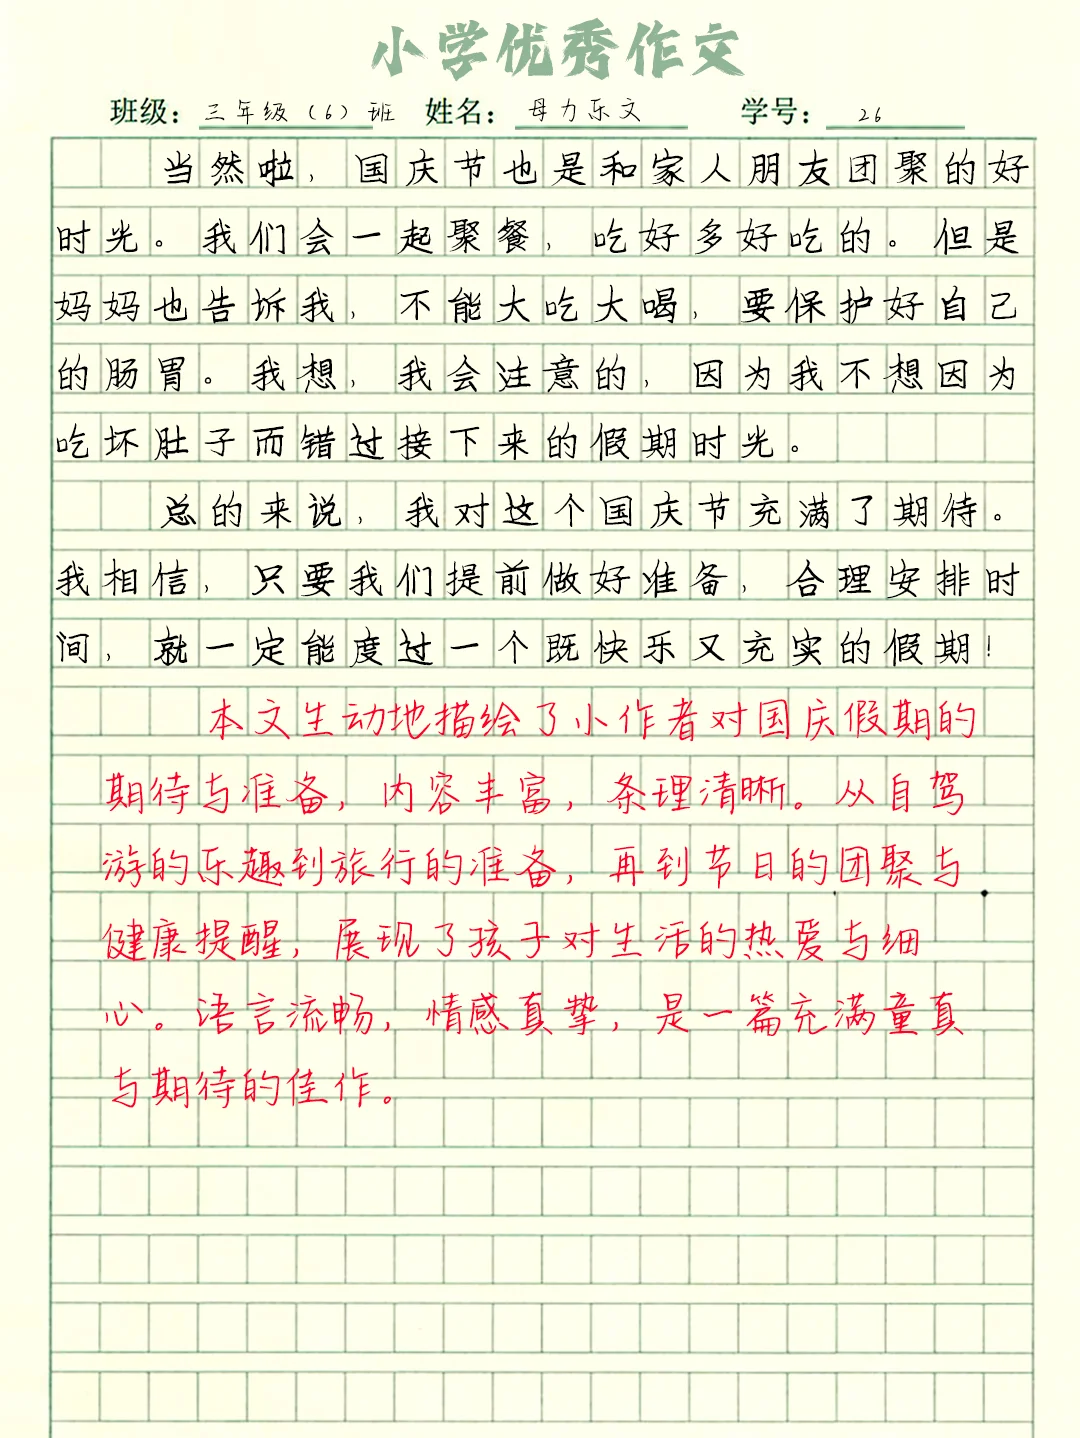 小学优秀作文
班级：三年级（6）班 姓名：母力乐文 学号：26
当然啦，国庆节也是和家人朋友团聚的好
时光。我们会一起聚餐，吃好多好吃的。但是
妈妈也告诉我，不能大吃大喝，要保护好自己
的肠胃。我想，我会注意的，因为我不想因为
吃坏肚子而错过接下来的假期时光。
总的来说，我对这个国庆节充满了期待。
我相信，只要我们提前做好准备，合理安排时
间，就一定能度过一个既快乐又充实的假期！
本文生动地描绘了小作者对国庆假期的
期待与准备，内容丰富，条理清晰。从自驾
游的乐趣到旅行的准备，再到节日的团聚与
健康提醒，展现了孩子对生活的热爱与细
心。语言流畅，情感真挚，是一篇充满童真
与期待的佳作。